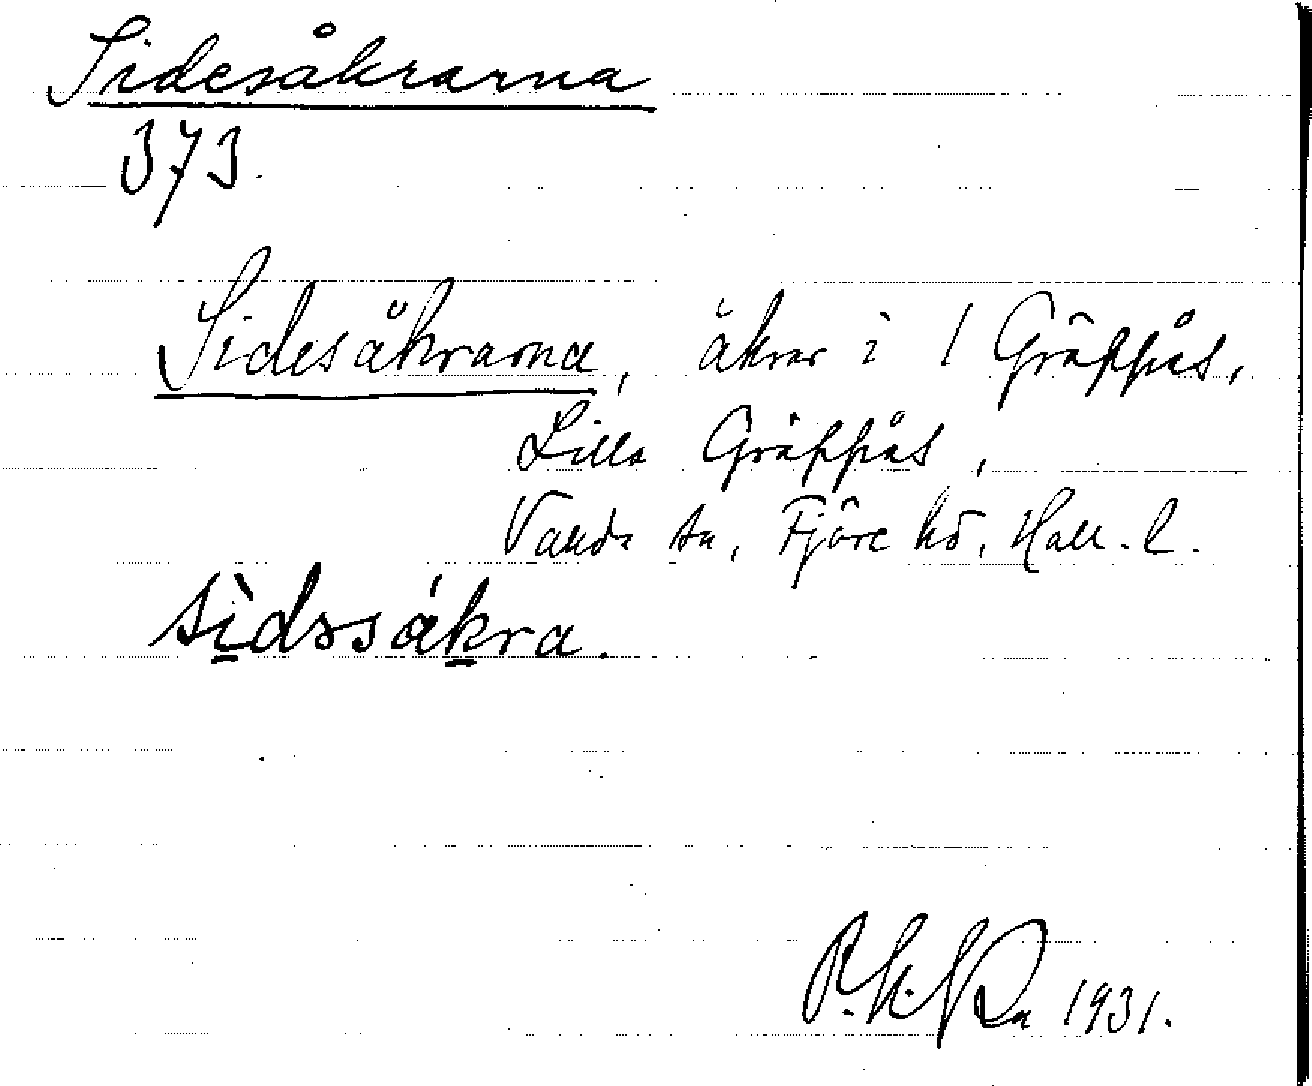 Sidesåkrarna
373.
Sidesåkrarna, åkrar i 1 Gräppås,
Lilla Gräppås,
Vallda sn, Fjäre hd, Hall. l.
sìdssåkra.
1931.